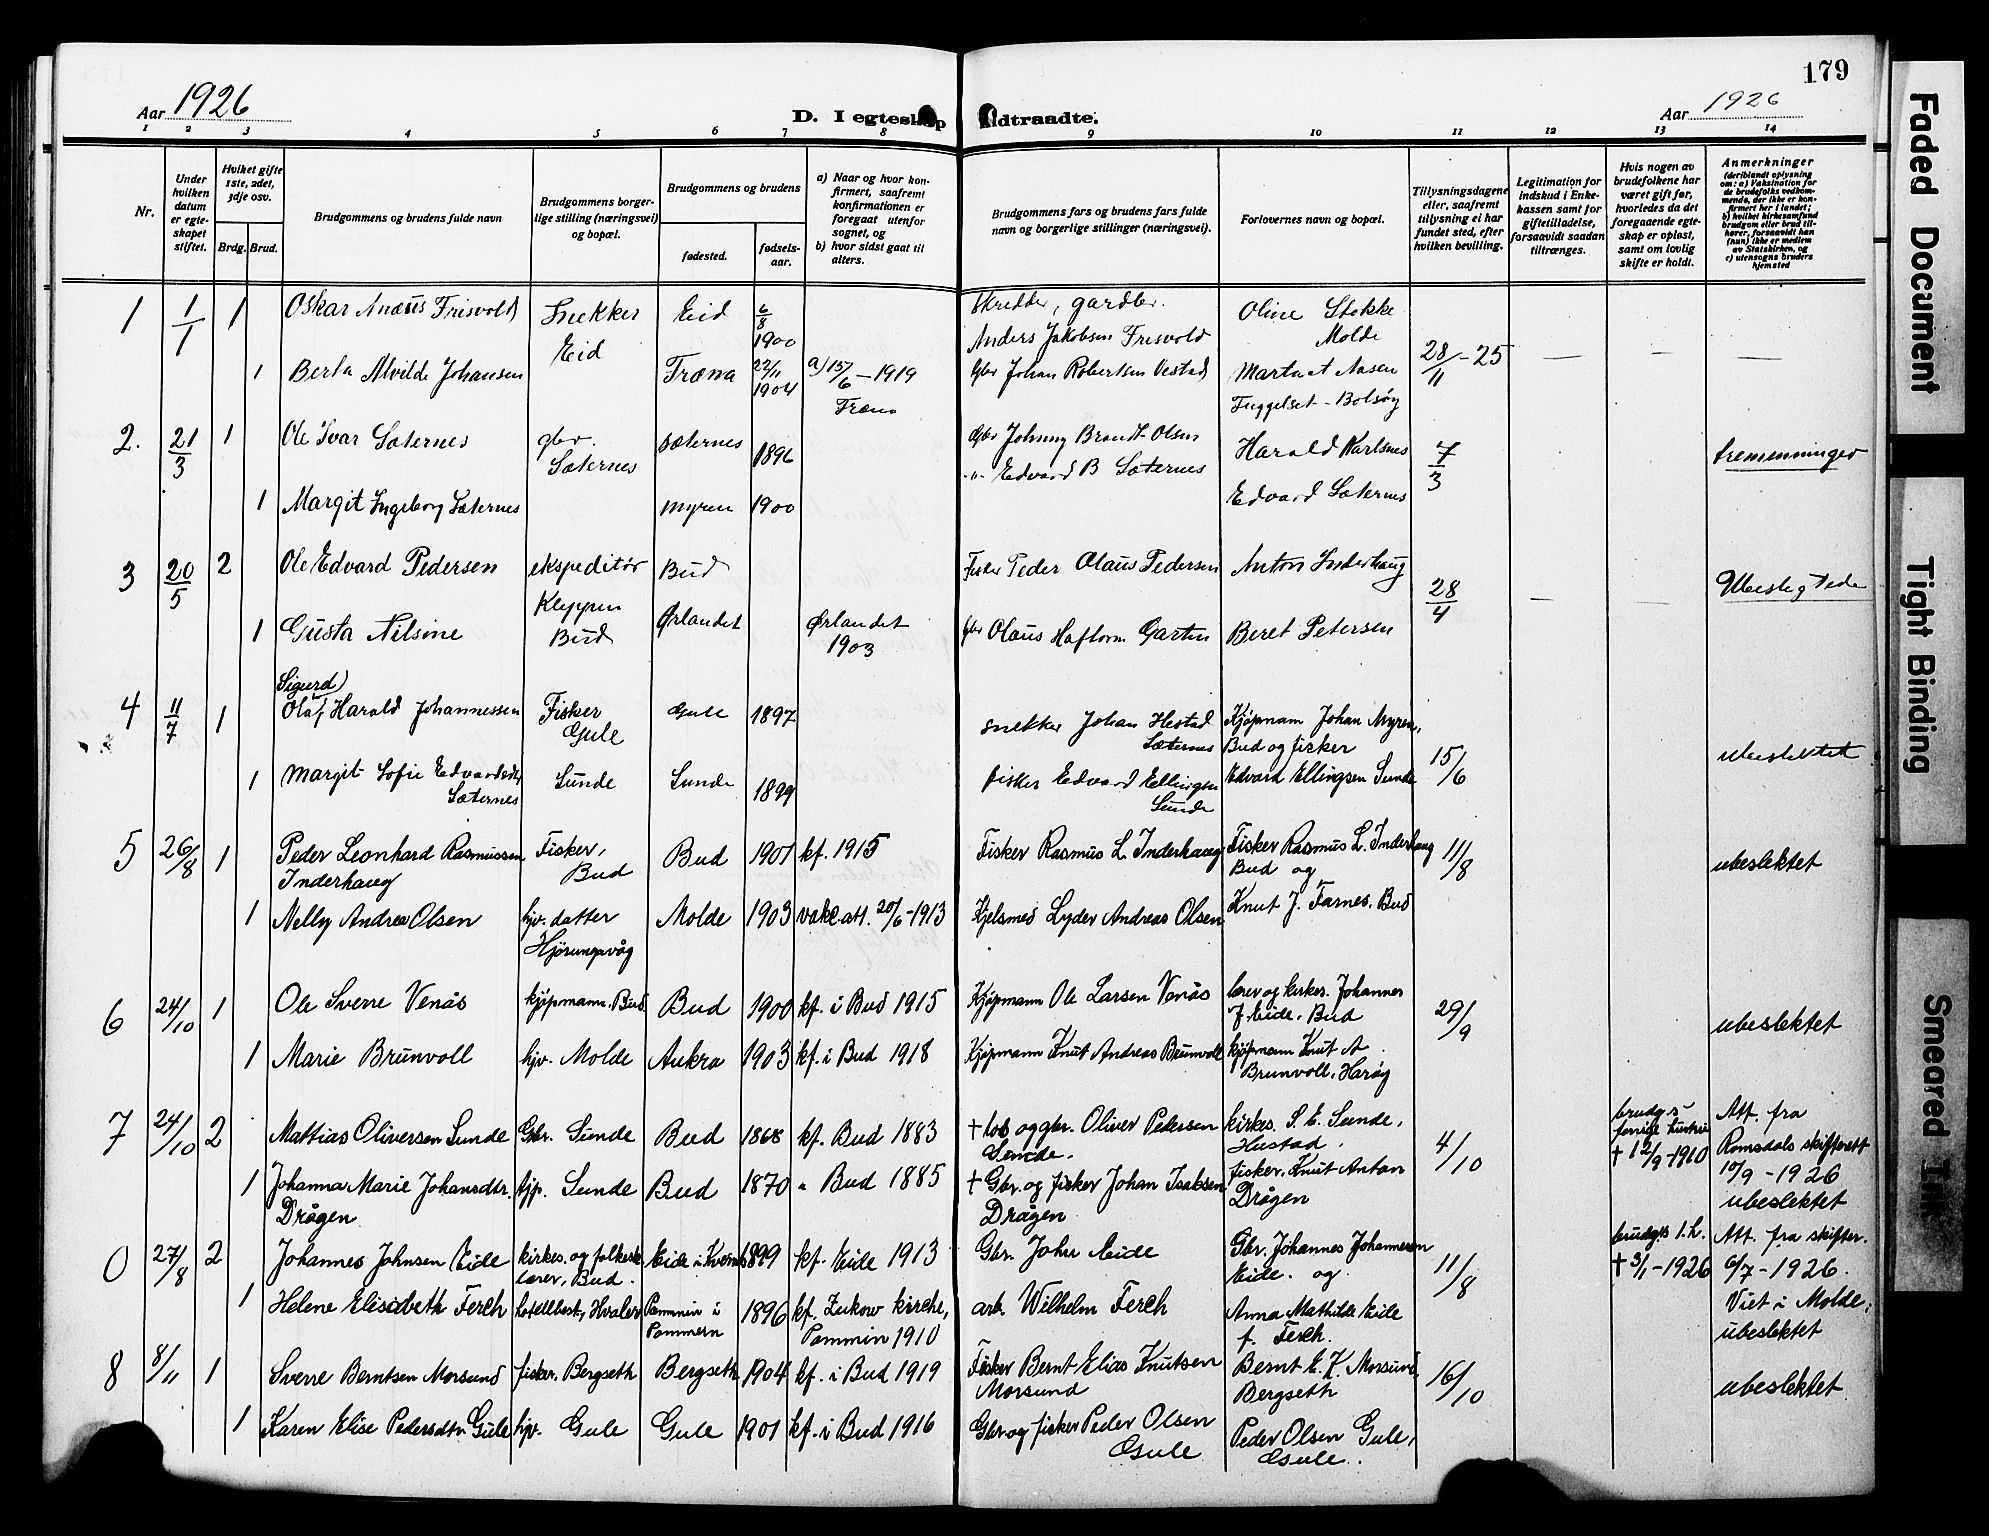 179
Aar 1926
D. I egteskap indtraadte.
Aar 1926
1 2 3 4 5 6 7 8 9 10 11 12 13 14
Nr.
Under hvilken datum er egteskapet stiftet.
Hvilket gifte 1ste, 2det, 3dje osv.
Brdg. Brud.
Brudgommens og brudens fulde navn
Brudgommens borgerlige stilling (næringsvei) og bopæl.
Brudgommens og brudens
fødested.
fødselsaar.
a) Naar og hvor konfirmert, saafremt konfirmationen er foregaat utenfor sognet, og
b) hvor sidst gaat til alters.
Brudgommens fars og brudens fars fulde navn og borgerlige stillinger (næringsvei).
Forlovernes navn og bopæl.
Tillysningsdagene eller, saafremt tillysning ei har fundet sted, efter hvilken bevilling.
Legitimation for indskud i Enkekassen samt for giftetilladelse, forsaavidt saadan tiltrænges.
Hvis nogen av brudefolkene har været gift før, hvorledes da det foregaaende egteskap er opløst, samt om lovlig skifte er holdt.
Anmerkninger
(deriblandt oplysning om: a) Vaksination for de brudefolks vedkommende, der ikke er konfirmert her i landet; b) hvilket kirkesamfund brudgom eller brud tilhører, forsaavidt han (hun) ikke er medlem av Statskirken, og c) utensogns bruders hjemsted
1 1/1 1 Oskar Anæus Frisvold Snekker Eid Eid 6/8 1900 Skredder, gardbr. Anders Jakobsen Frisvold Oline Stokke Molde 28/11-25 — — —
1 Berta Alvilde Johansen Fræna 22/11 1904 a) 15/6-1919 Fræna Gbr Johan Robertsen Vestad Marta A Aasen Fuggelset - Bolsøy
2. 21/3 1 Ole Ivar Sæternes gbr. Sæternes Sæternes 1896 Gbr Johnny Brandt Olsen Harald Karlsnes 7/3 tremenninger
1 Margit Ingeborg Sæternes Myren 1900 -"- Edvard B Sæternes Edvard Sæternes
3 20/5 2 Ole Edvard Pedersen ekspeditør Kleppen Bud Bud Fisker Peder Olaus Pedersen Anton Inderhaug 28/4 — — Ubeslegtede
1 Gusta Nilsine Ørlandet Ørlandet 1903 gbr Olaus Haftorn Garten Beret Petersen
4 11/7 1 Sigurd Olaf Harald Johannessen Fisker Gule Gule 1897 snekker Johan Hestad Sæternes Kjøpmann Johan Myren, Bud og fisker 15/6 ubeslektet
1 Margit Sofie Edvardsdtr Sæternes Sunde Sunde 1899 fisker Edvard Ellingsen Sunde Edvard Ellingsen Sunde
5 26/8 1 Peder Leonhard Rasmussen Inderhaug Fisker, Bud Bud 1901 kf. 1915 Fisker Rasmus L. Inderhaug Fisker Rasmus L. Inderhaug Bud og 11/8 ubeslektet
1 Nelly Andrea Olsen hjv. datter Hjørungavåg Molde 1903 vakc.att. 20/6-1913 Hjelsmed Lyder Andreas Olsen Knut J. Farnes. Bud
6 24/10 1 Ole Sverre Venås kjøpmann. Bud Bud 1900 kf. i Bud 1915 Kjøpmann Ole Larsen Venås lærer og kirkes. Johannes J. Eide, Bud 29/9 ubeslektet
1 Marie Brunvoll hjv. Molde Aukra 1903 kf. i Bud 1918 Kjøpmann Knut Andreas Brunvoll kjøpmann Knut A Brunvoll, Harøy
7 24/10 2 Mattias Oliversen Sunde Gbr. Sunde Bud 1868 kf. Bud 1883 † los og gbr. Oliver Pedersen Sunde. kirkes. S. E. Sunde, Hustad. 4/10 brudg.s forrige hustru † 12/9-1910 Att. fra Romsdals skifterett 10/9-1926 ubeslektet
1 Johanna Marie Johansdtr. Drågen tjp. Sunde Bud 1870 " Bud 1885 † Gbr. og fisker Johan Isaksen Drågen fisker. Knut Anton Drågen
0 27/8 2 Johannes Johnsen Eide kirkes. og folkeskolelærer, Bud. Eide i Kvernes 1899 kf. Eide 1913 Gbr. John Eide Gbr. Johannes Johannesen Eide. og 11/8 brudg.s 1. h. † 3/1-1926 Att. fra skifter. 6/7-1926. Viet i Molde; ubeslektet
1 Helene Elisabeth Ferch Hvaler Pommin i Pommern 1896 kf. Zukow kirche, Pommin 1910 arb. Wilhelm Ferch Anna Mathilde Eide f. Ferch.
8 8/11 1 Sverre Berntsen Morsund fisker. Bergseth Bergseth 1904 kf. i Bud 1919 Fisker Bernt Elias Knutsen Morsund Bernt E. K. Morsund, Bergseth 16/10 ubeslektet
1 Karen Elise Pedersdtr. Gule hjv. Gule Gule 1901 kf. i Bud 1916 Gbr og fisker Peder Olsen Gule Peder Olsen Gule, Gule.
Faded Document
Tight Binding
Smeared Ink